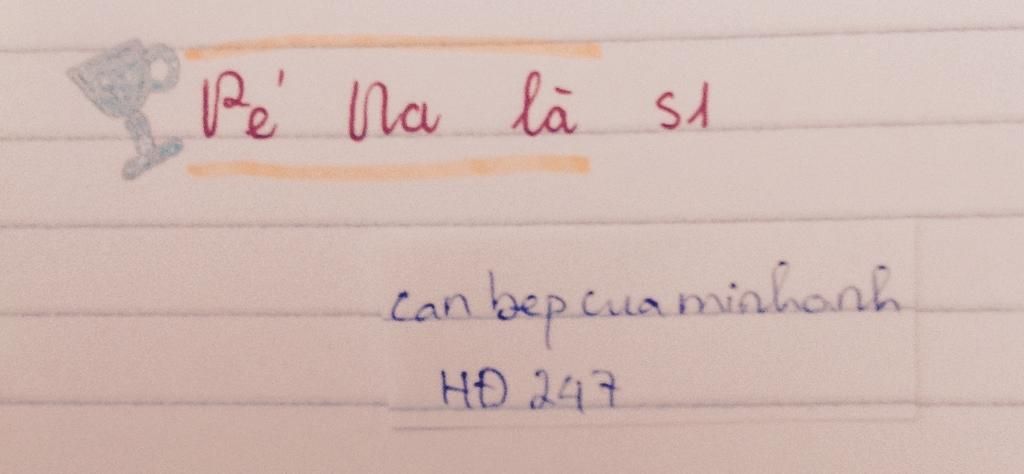 Bé Na là s1
canbepcuaminhanh
HĐ 247